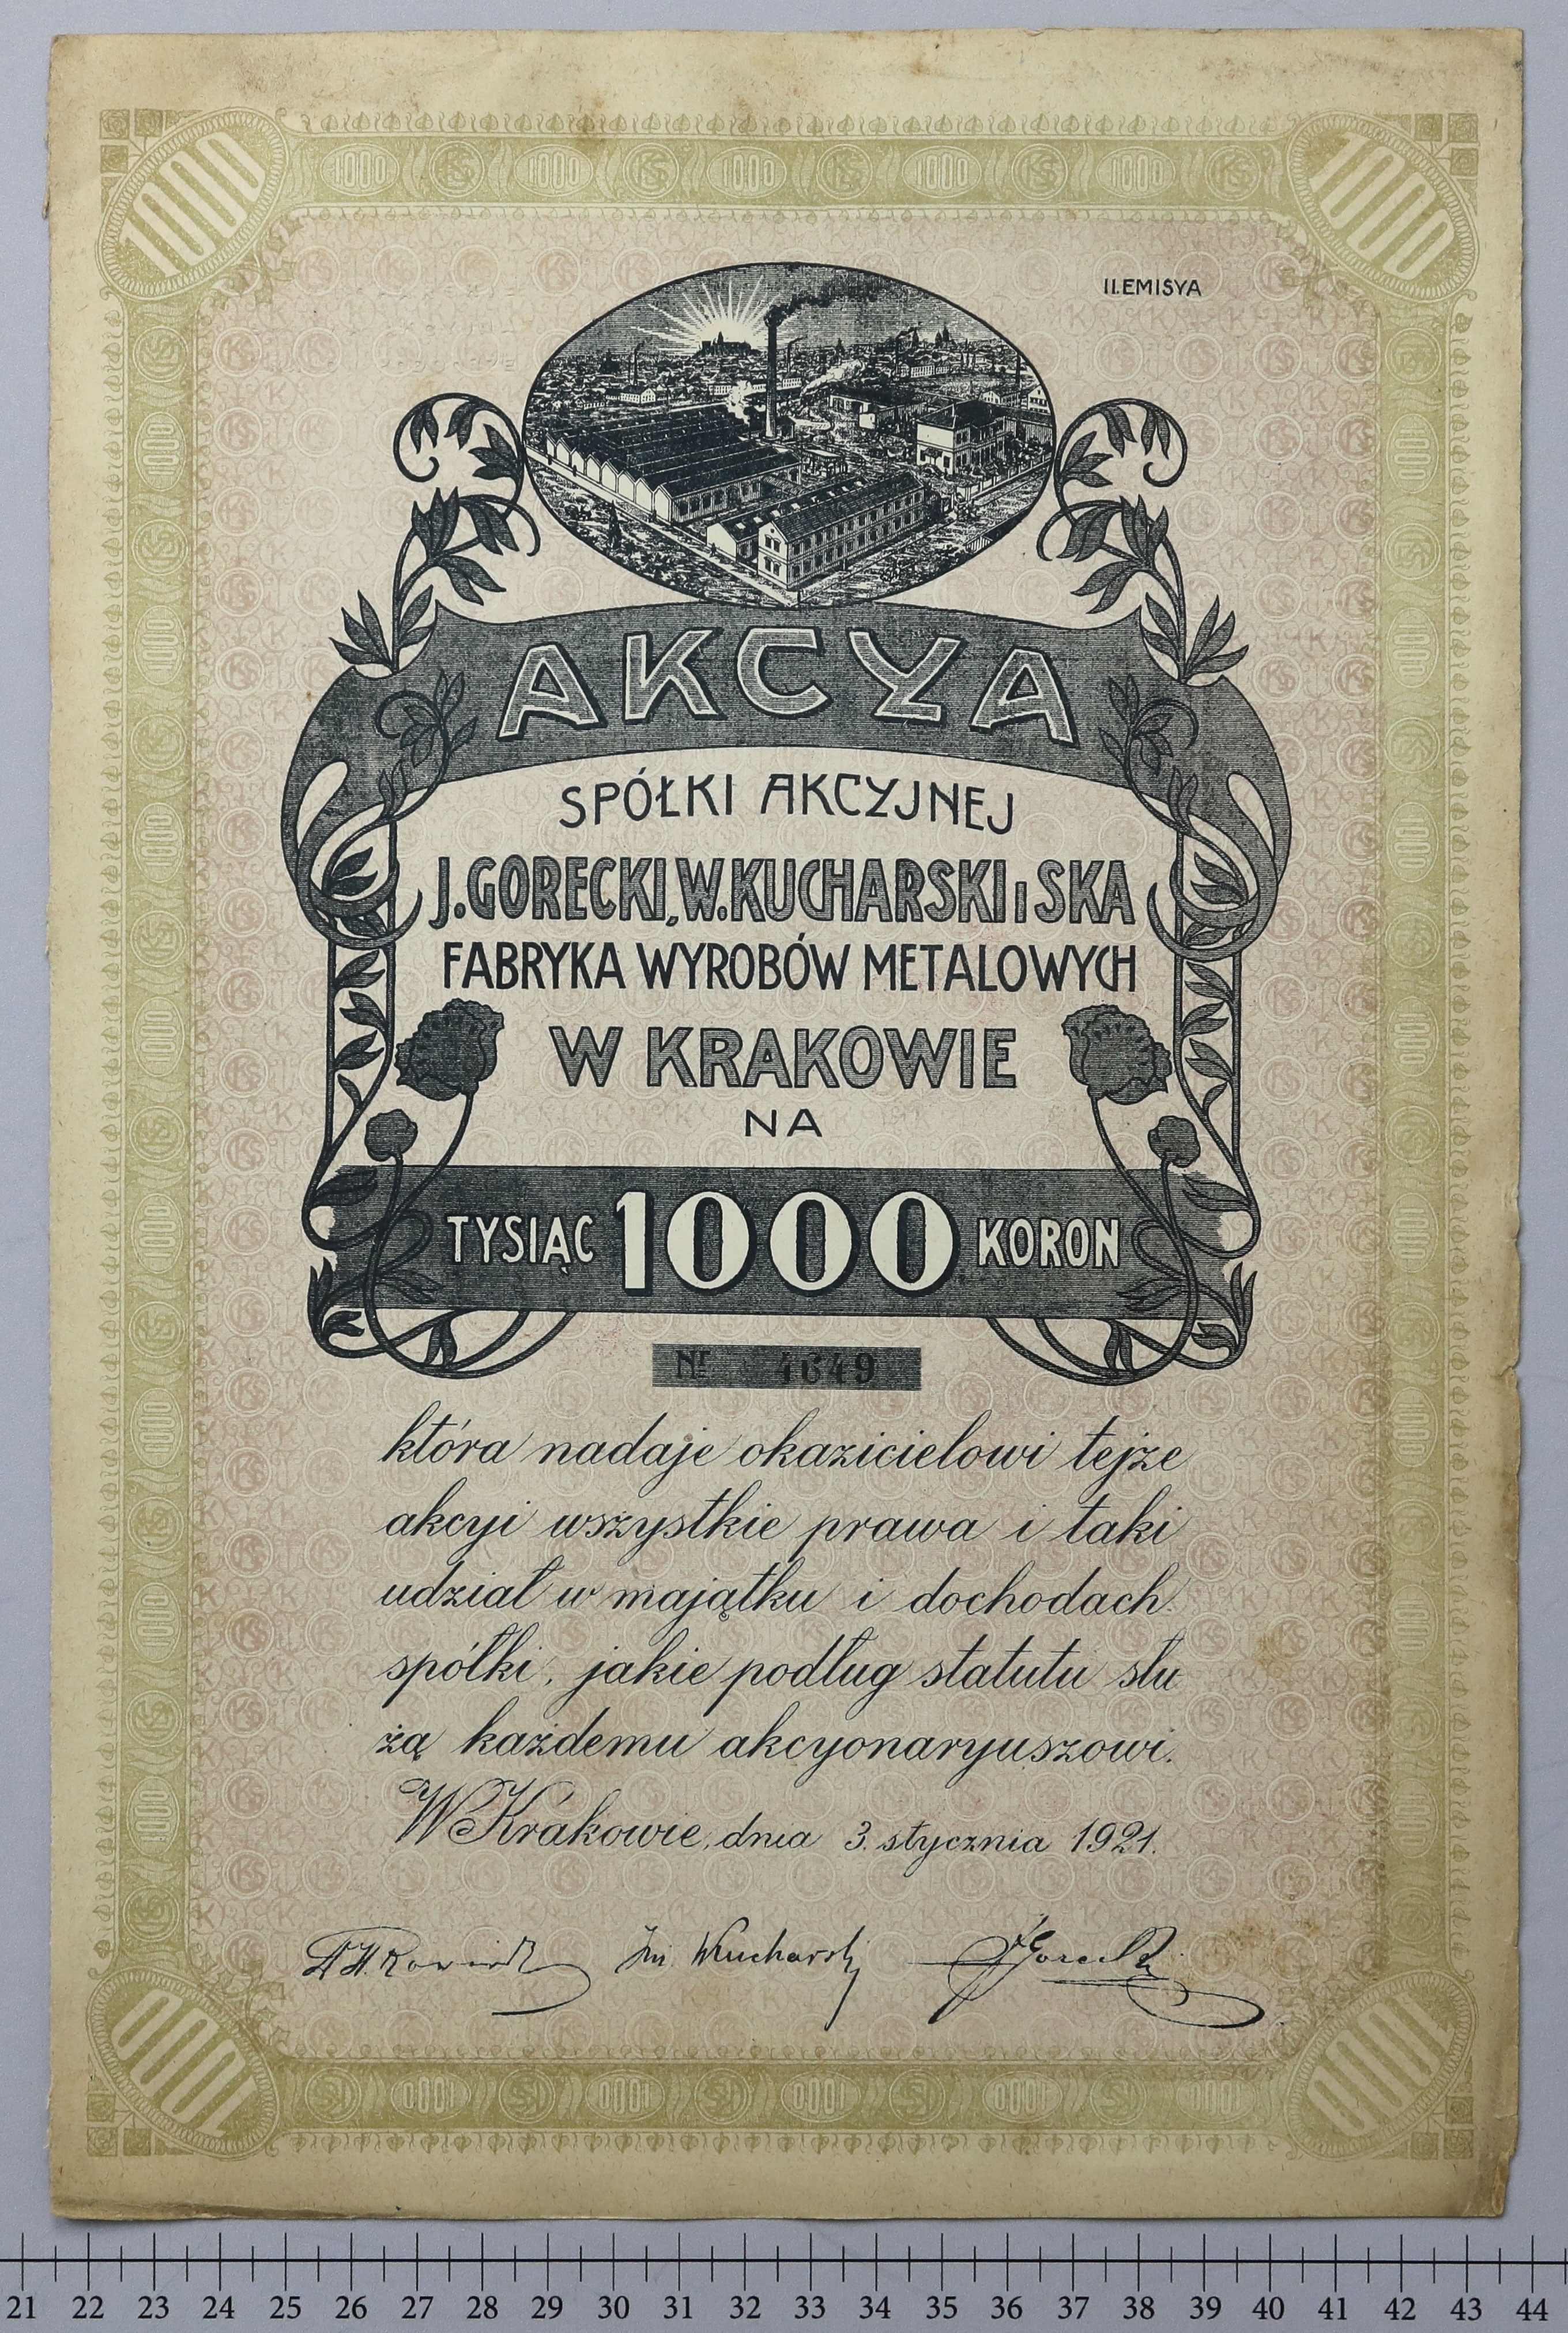 1000 1000 KS 1000 KS 1000 KS 1000 KS 1000 KS 1000
II.EMISYA
AKCYA
SPÓŁKI AKCYJNEJ
J.GORECKI, W.KUCHARSKI i SKA
FABRYKA WYROBÓW METALOWYCH
W KRAKOWIE
NA
TYSIĄC 1000 KORON
Nr 4649
która nadaje okazicielowi tejże
akcyi wszystkie prawa i taki
udział w majątku i dochodach
spółki, jakie podług statutu słu
żą każdemu akcyonaryuszowi.
W Krakowie, dnia 3. stycznia 1921.
WKucharski Gorecki
1000 KS 1000 KS 1000 KS 1000 KS 1000 KS 1000 1000
21 22 23 24 25 26 27 28 29 30 31 32 33 34 35 36 37 38 39 40 41 42 43 44